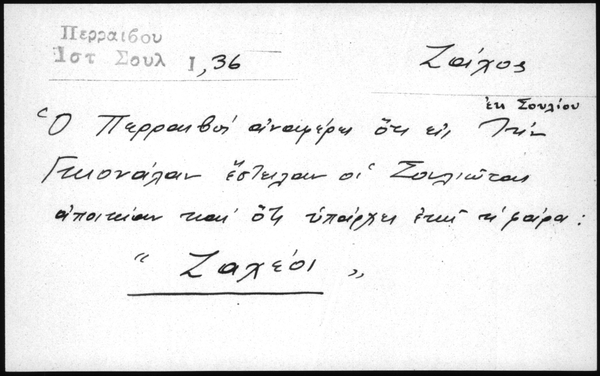 Περραιβου
Ἱστ Σουλ I, 36
Ζαΐχος
ἐκ Σουλίου
Ὁ Περραιβός ἀναφέρει ὅτι εἰς τὴν
ἔστειλαν οἱ Σουλιῶται
ἀποικίαν καὶ ὅτι ὑπάρχει ἐκεῖ ἡ φάρα:
" Ζαχέοι "